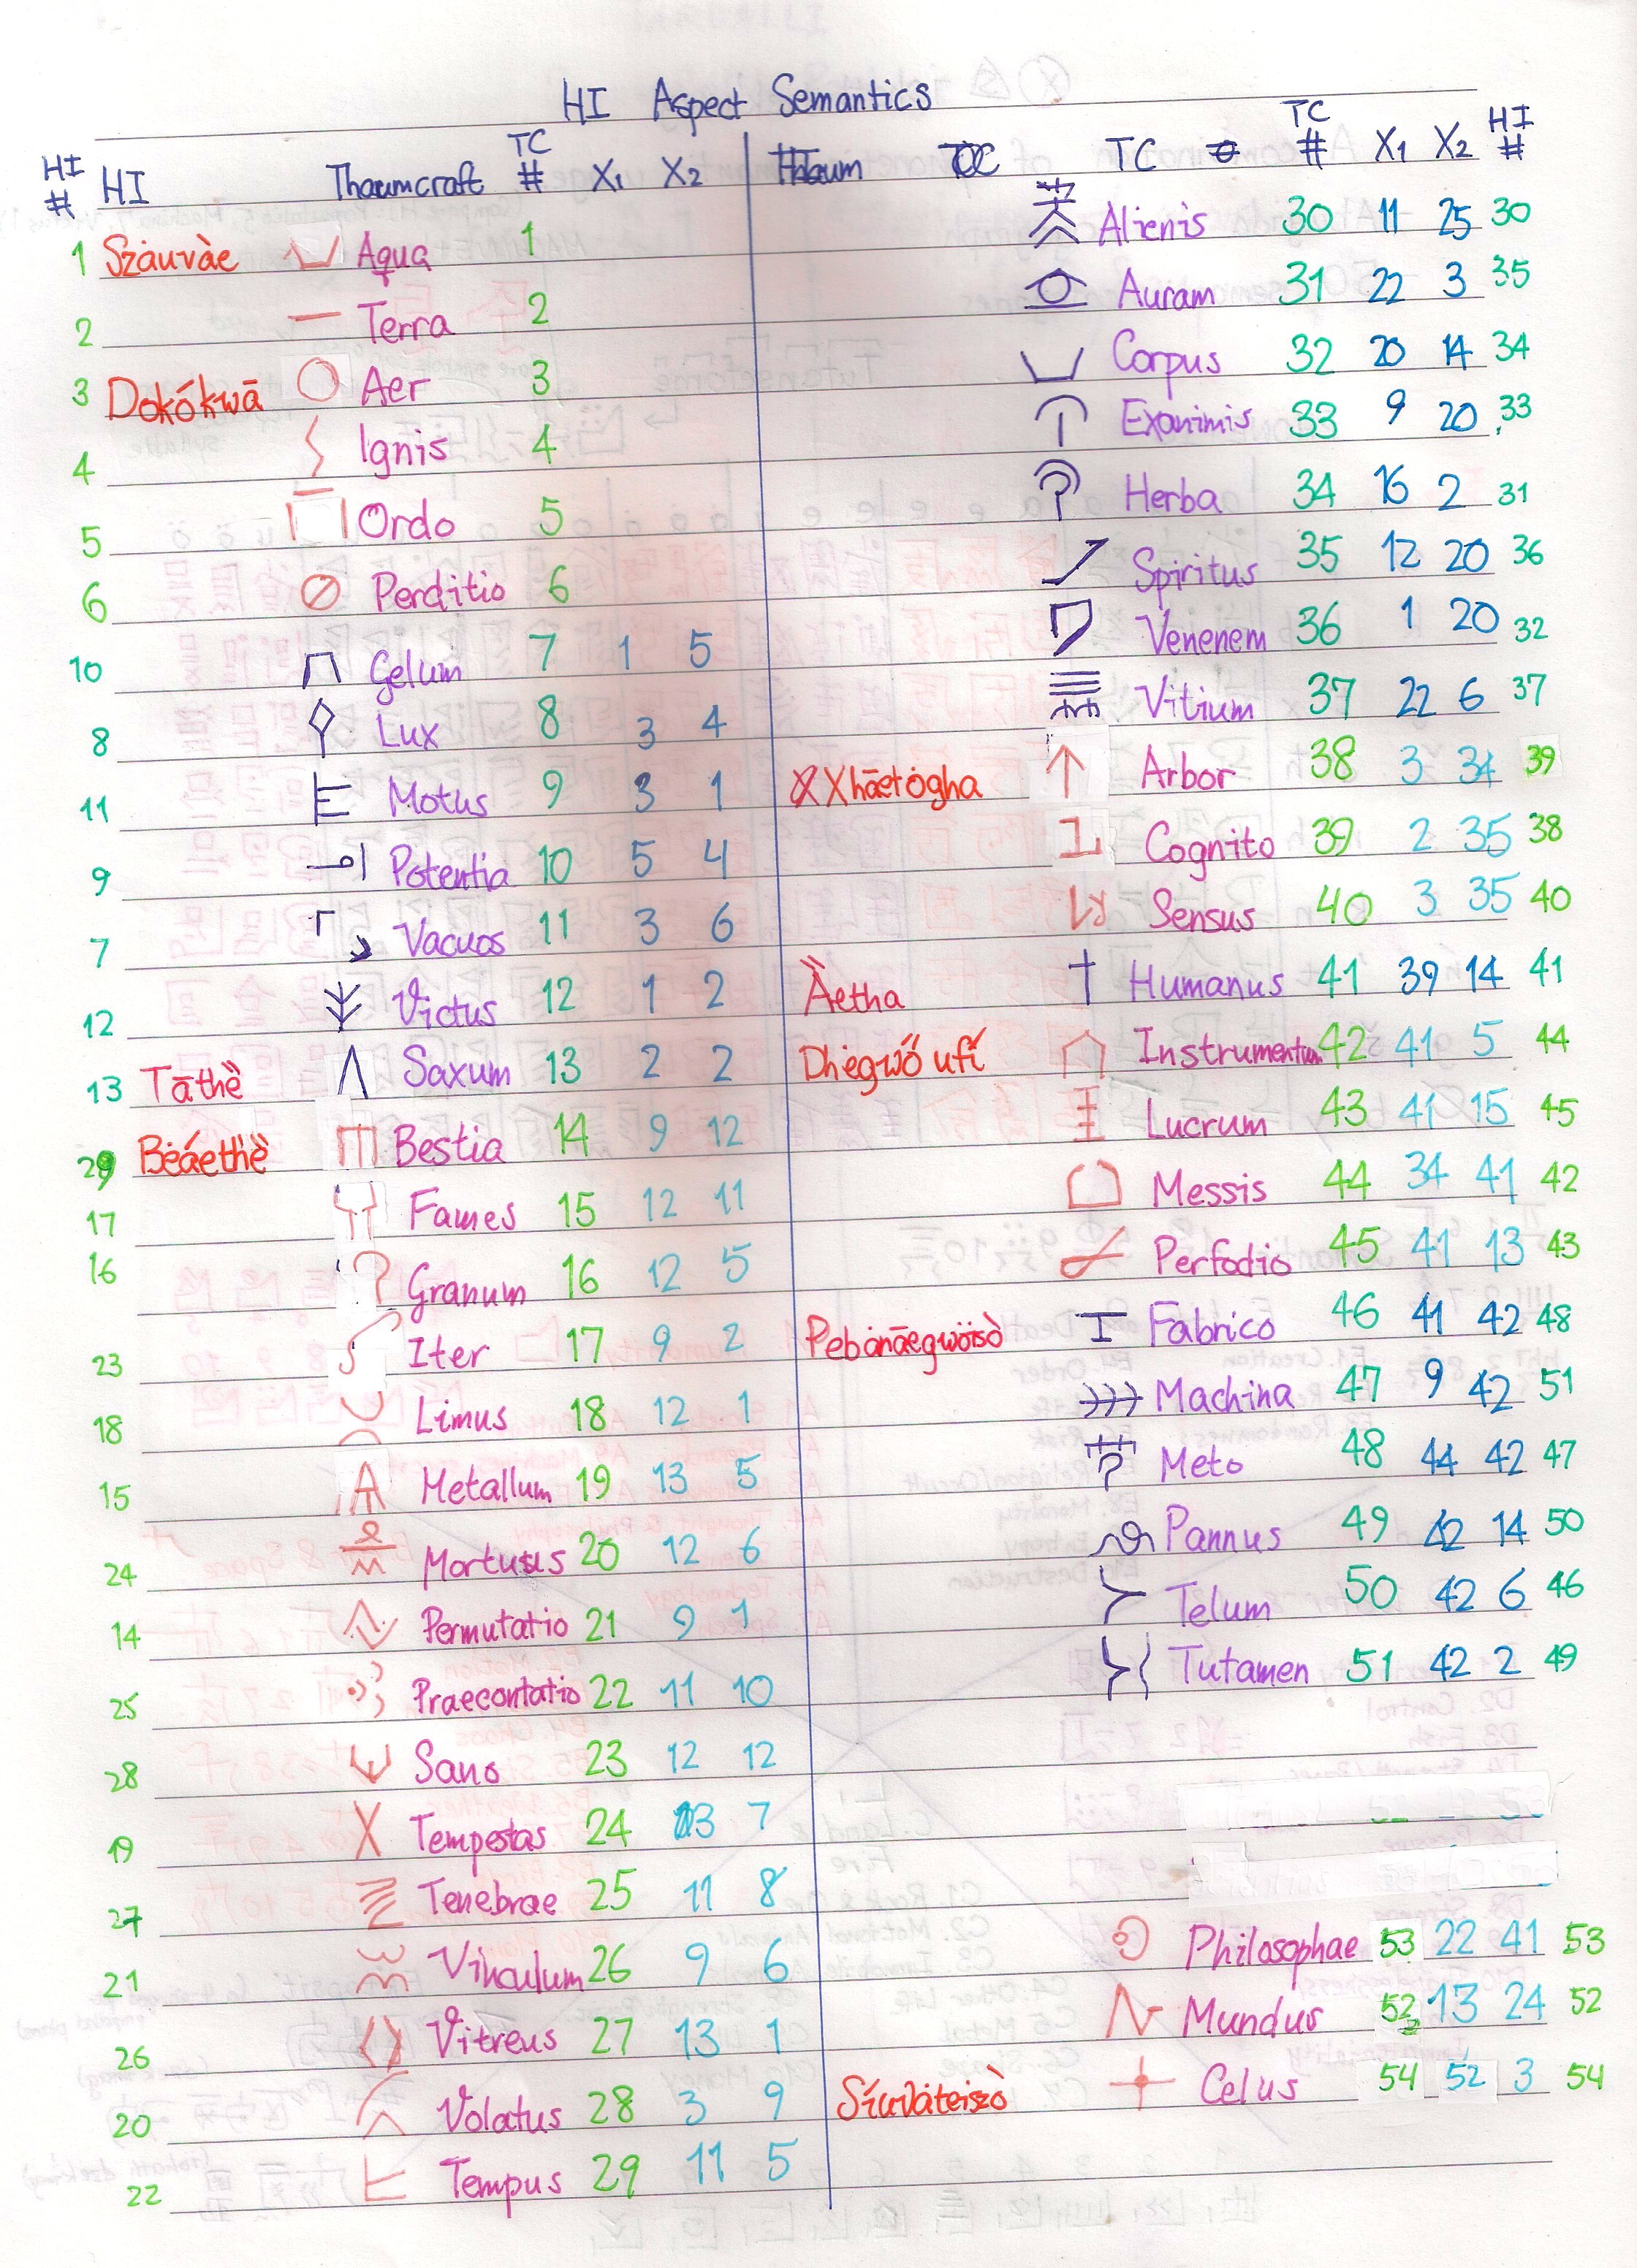 HI Aspect Semantics
HI # HI Thaumcraft TC # X1 X2
1 Száuvàe Aqua 1
2 Terra 2
3 Dokókwā Aer 3
4 Ignis 4
5 Ordo 5
6 Perditio 6
10 Gelum 7 1 5
8 Lux 8 3 4
11 Motus 9 3 1
9 Potentia 10 5 4
7 Vacuos 11 3 6
12 Victus 12 1 2
13 Tāthè Saxum 13 2 2
29 Bëáethè Bestia 14 9 12
17 Fames 15 12 11
16 Granum 16 12 5
23 Iter 17 9 2
18 Limus 18 12 1
15 Metallum 19 13 5
24 Mortuus 20 12 6
14 Permutatio 21 9 1
25 Praecontatio 22 11 10
28 Sano 23 12 12
19 Tempestas 24 13 7
27 Tenebrae 25 11 8
21 Vinculum 26 9 6
26 Vitreus 27 13 1
20 Volatus 28 3 9
22 Tempus 29 11 5
TC TC # X1 X2 HI #
Alienis 30 11 25 30
Auram 31 22 3 35
Corpus 32 20 14 34
Exanimis 33 9 20 33
Herba 34 16 2 31
Spiritus 35 12 20 36
Venenem 36 1 20 32
Vitium 37 22 6 37
Xhāetògha Arbor 38 3 34 39
Cognito 39 2 35 38
Sensus 40 3 35 40
Àetha Humanus 41 39 14 41
Dhègwő ufí Instrumentum 42 41 5 44
Lucrum 43 41 15 45
Messis 44 34 41 42
Perfodio 45 41 13 43
Fabrico 46 41 42 48
Machina 47 9 42 51
Meto 48 44 42 47
Pannus 49 42 14 50
Telum 50 42 6 46
Tutamen 51 42 2 49
Philosophae 53 22 41 53
Mundus 52 13 24 52
Celus 54 52 3 54